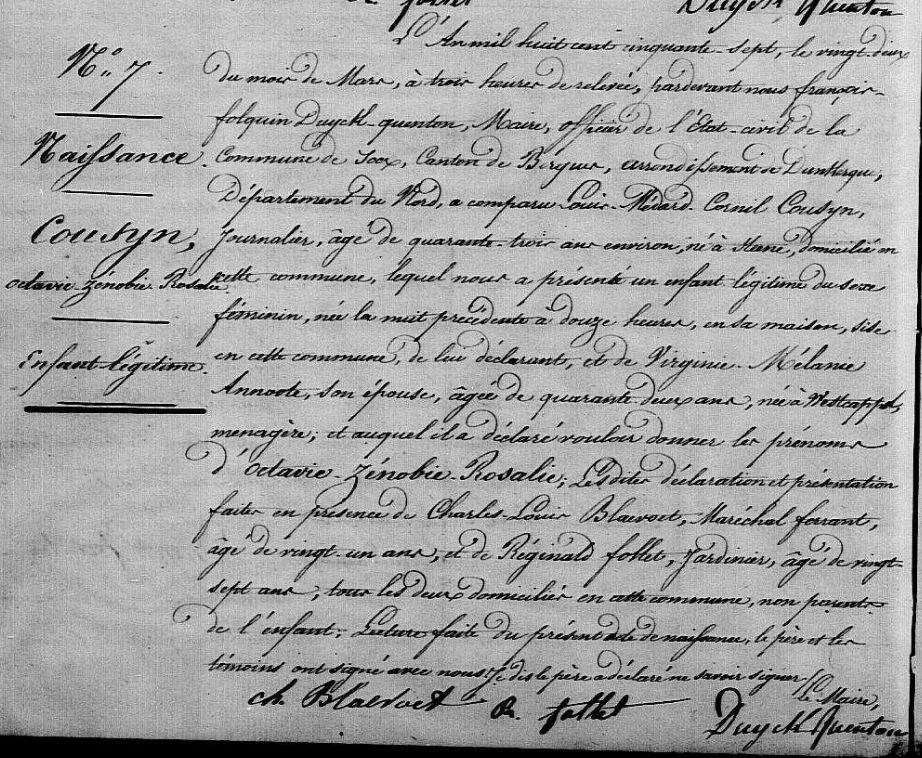 Duyck Quenton
N° 7.
Naissance.
Cousyn,
octavie-Zénobie-Rosalie
Enfant légitime.
L'An mil huit cent cinquante-sept, le vingt-deux
du mois de Mars, à trois heures de relevée, pardevant nous françois-
folquin Duyck-quenton, Maire, officier de l'Etat-civil de la
Commune de Socx, Canton de Bergues, arrondissement de Dunkerque,
Département du Nord, a comparu Louis-Médard-Cornil Cousyn,
Journalier, âgé de quarante-trois ans environ, né à Steene, domicilié en
cette commune, lequel nous a présenté un enfant légitime du sexe
féminin, née la nuit précédente à douze heures, en sa maison, sise
en cette commune, de lui déclarant, et de Virginie-Mélanie
Annoote, son épouse, âgée de quarante-deux ans, née à Westcappel,
menagère; et auquel il a déclaré vouloir donner les prénoms
d'octavie-Zénobie-Rosalie; Lesdites déclaration et présentation
faites en présence de Charles-Louis Blaevoet, Maréchal ferrant,
âgé de vingt-un ans, et de Réginald follet, Jardinier, âgé de vingt-
sept ans; tous les deux domiciliés en cette commune, non parents
de l'enfant; Lecture faite du présent acte de naissance, le père et les
témoins ont signé avec nous; je dis le père a déclaré ne savoir signer
ch. Blaevoet R. follet
Le Maire,
Duyck Quenton